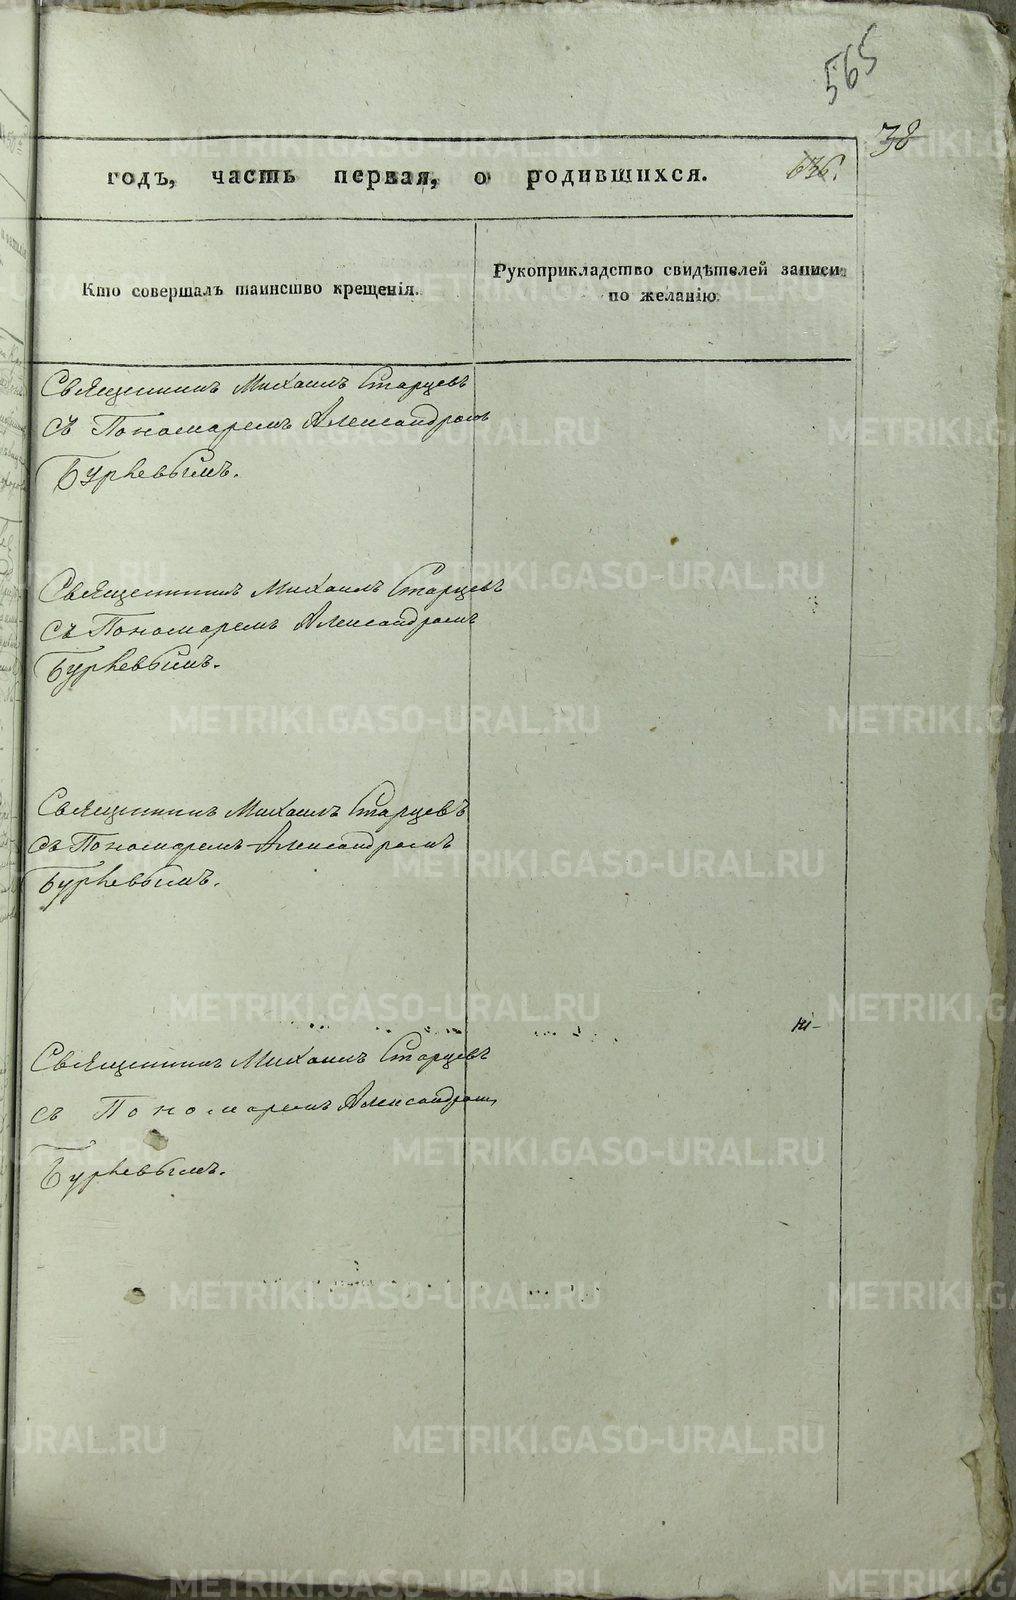 565
38
636.
годъ, часть первая, о родившихся.
Кто совершалъ таинство крещенія.
Рукоприкладство свидѣтелей записи
по желанію.
Священникъ Михаилъ Старцевъ
съ Пономаремъ Александромъ
Бурневымъ.
Священникъ Михаилъ Старцевъ
съ Пономаремъ Александромъ
Бурневымъ.
Священникъ Михаилъ Старцевъ
съ Пономаремъ Александромъ
Бурневымъ.
Священникъ Михаилъ Старцевъ
съ Пономаремъ Александромъ
Бурневымъ.
METRIKI.GASO-URAL.RU